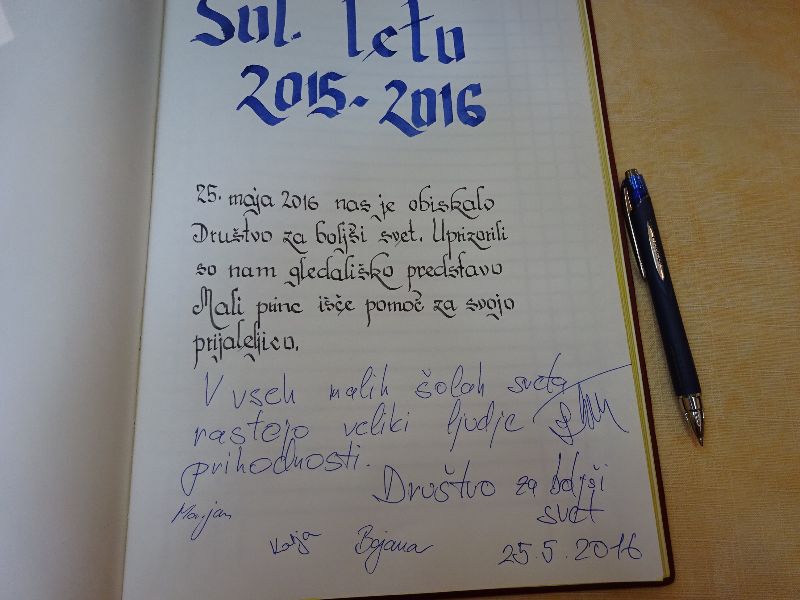 Šol. leto
2015-2016
25. maja 2016 nas je obiskalo
Društvo za boljši svet. Uprizorili
so nam gledališko predstavo
Mali princ išče pomoč za svojo
prijateljico.
V vseh malih šolah sveta
rastejo veliki ljudje
prihodnosti.
Društvo za boljši
svet
Marjan
Katja Bojana 25.5.2016